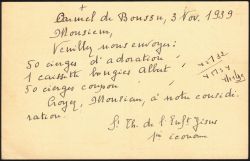 +
Carmel de Boussu, 3 Nov. 1939
Monsieur,
Veuillez nous envoyer:
50 cierges d'adoration
1 caissette bougies Albert
50 cierges coupon
Croyez, Monsieur, à notre considé
ration.
Sr Th. de l'Enft Jésus
économe